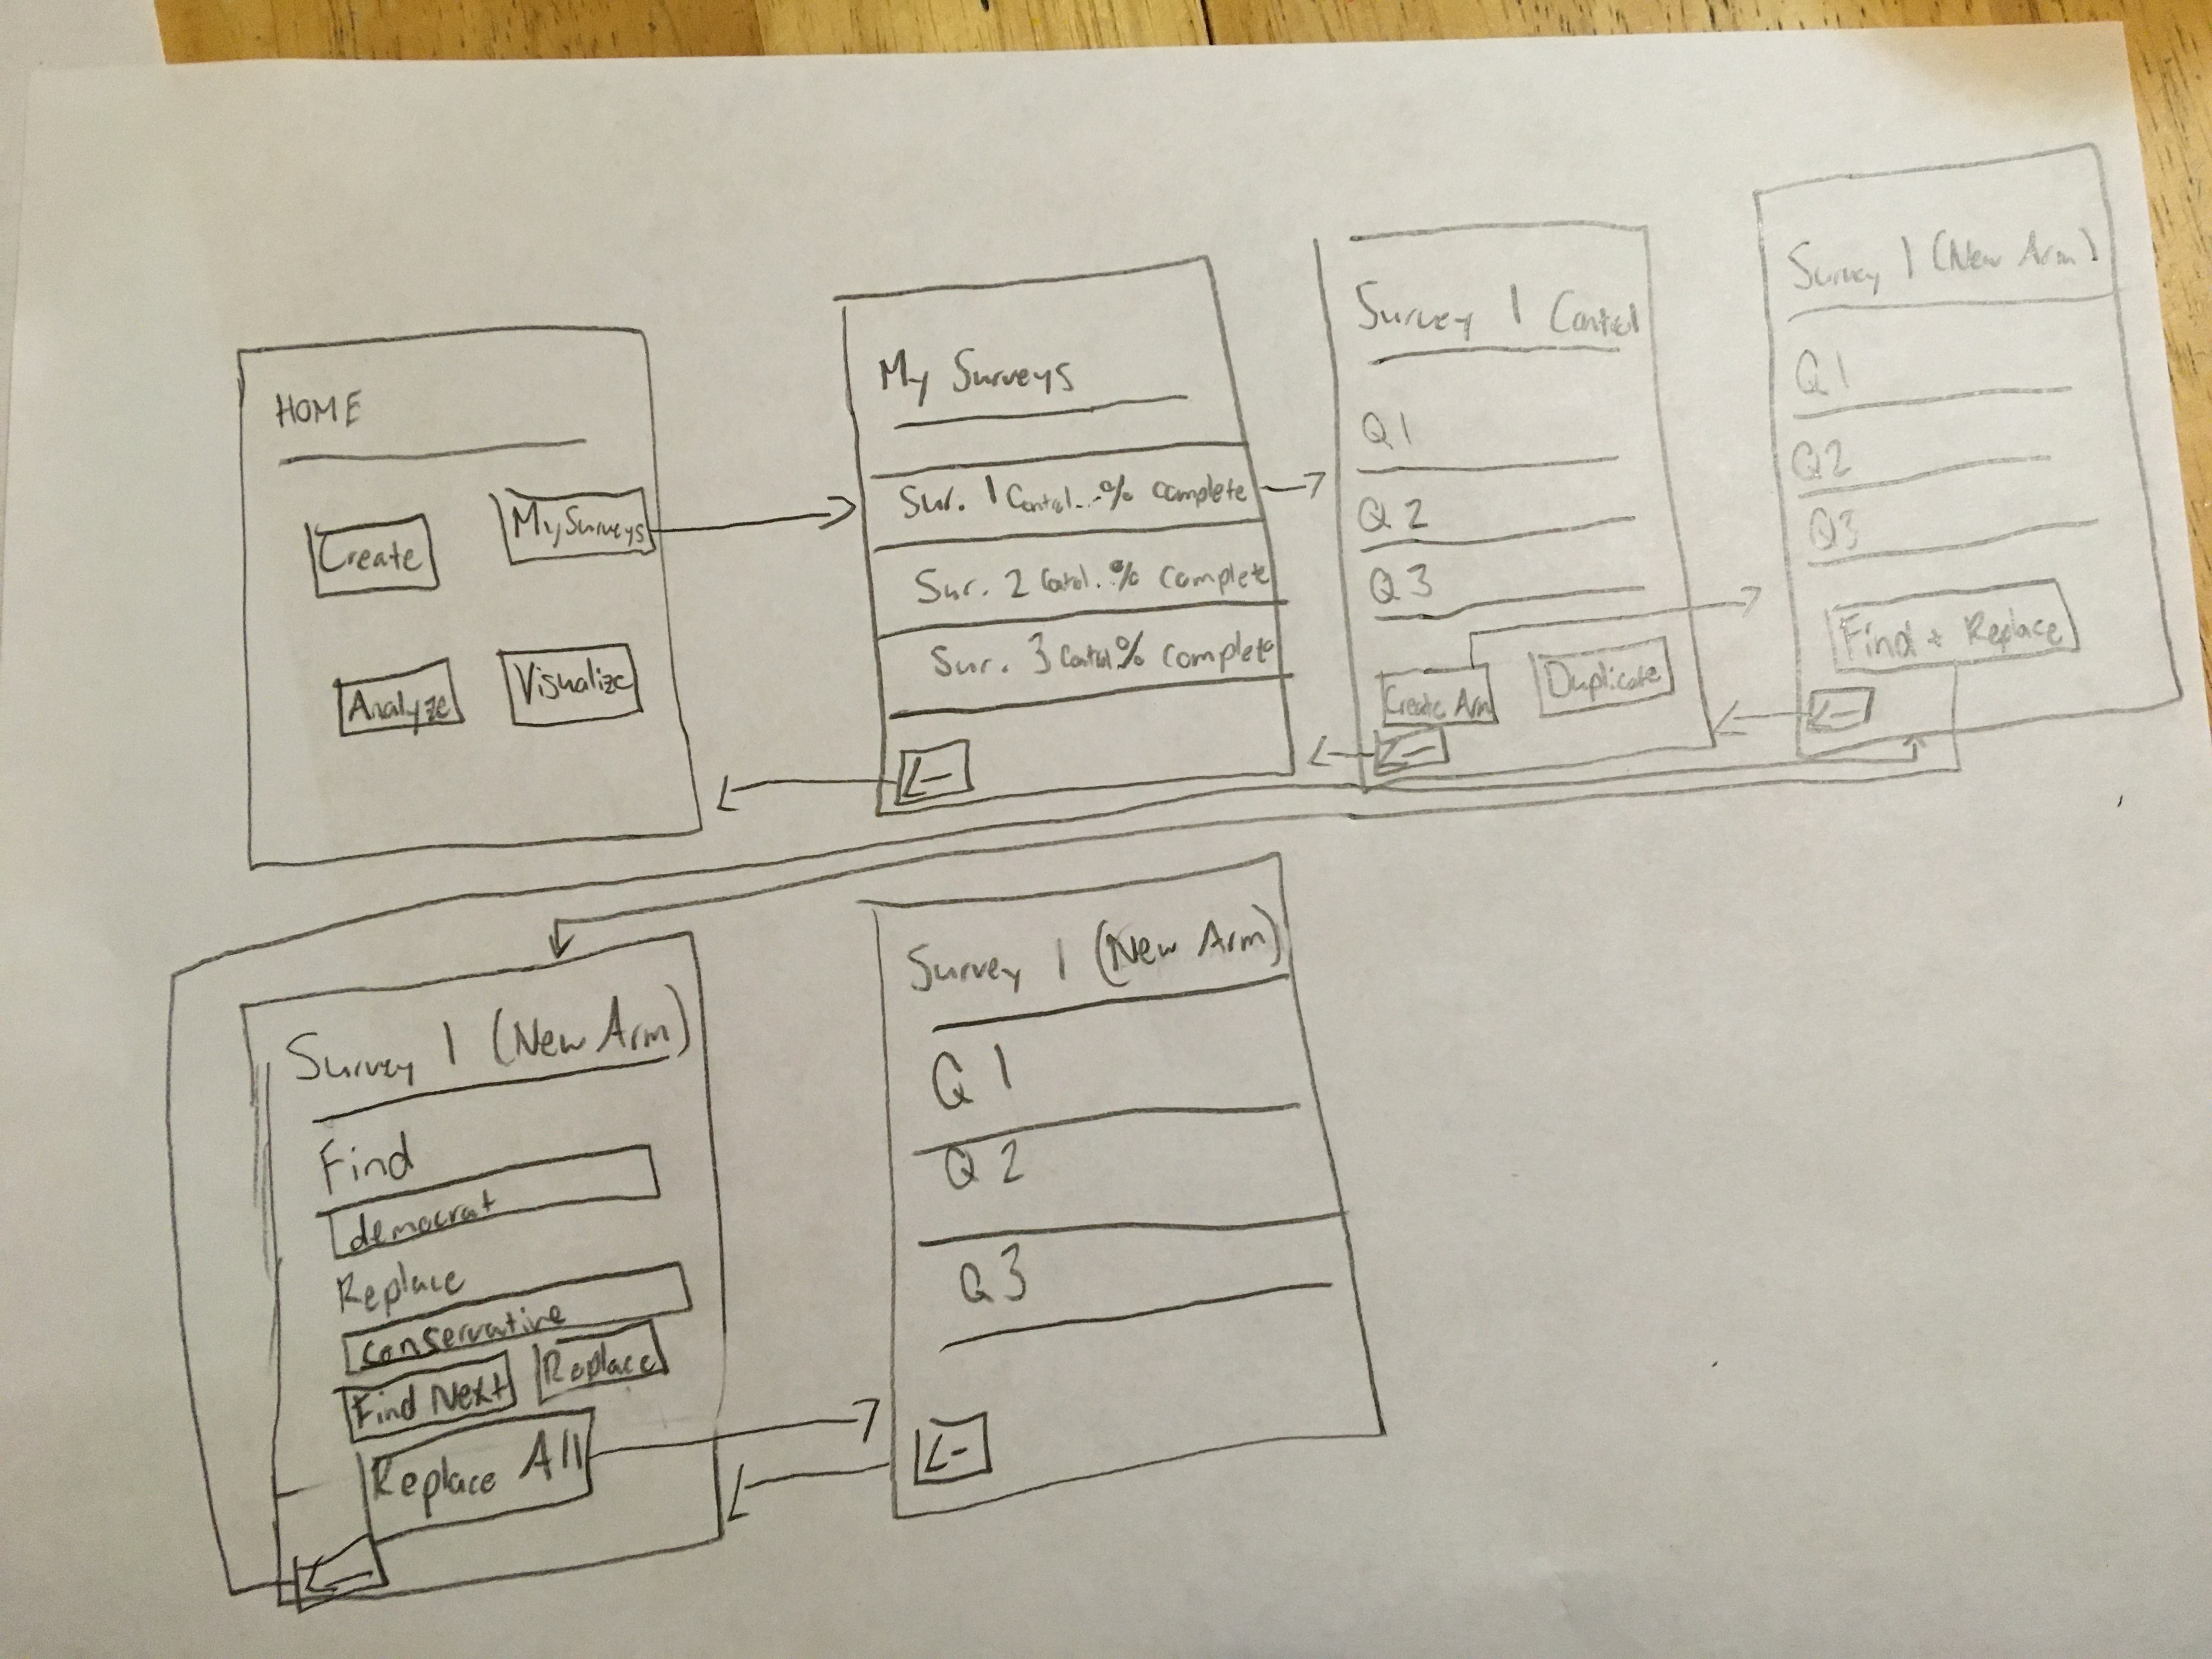 HOME
Create
My Surveys
Analyze
Visualize
My Surveys
Sur. 1 Control..% complete
Sur. 2 Control.% complete
Sur. 3 Control % complete
←
Survey 1 Control
Q1
Q2
Q3
Create Arm
Duplicate
←
Survey 1 (New Arm)
Q1
Q2
Q3
Find + Replace
←
Survey 1 (New Arm)
Find
democrat
Replace
conservative
Find Next
Replace
Replace All
←
Survey 1 (New Arm)
Q1
Q2
Q3
←